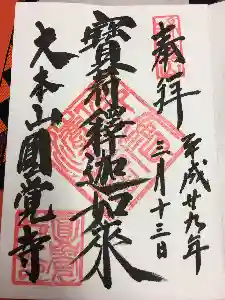 奉拝
平成廿九年
三月十三日
寳冠釋迦如来
大本山圓覚寺